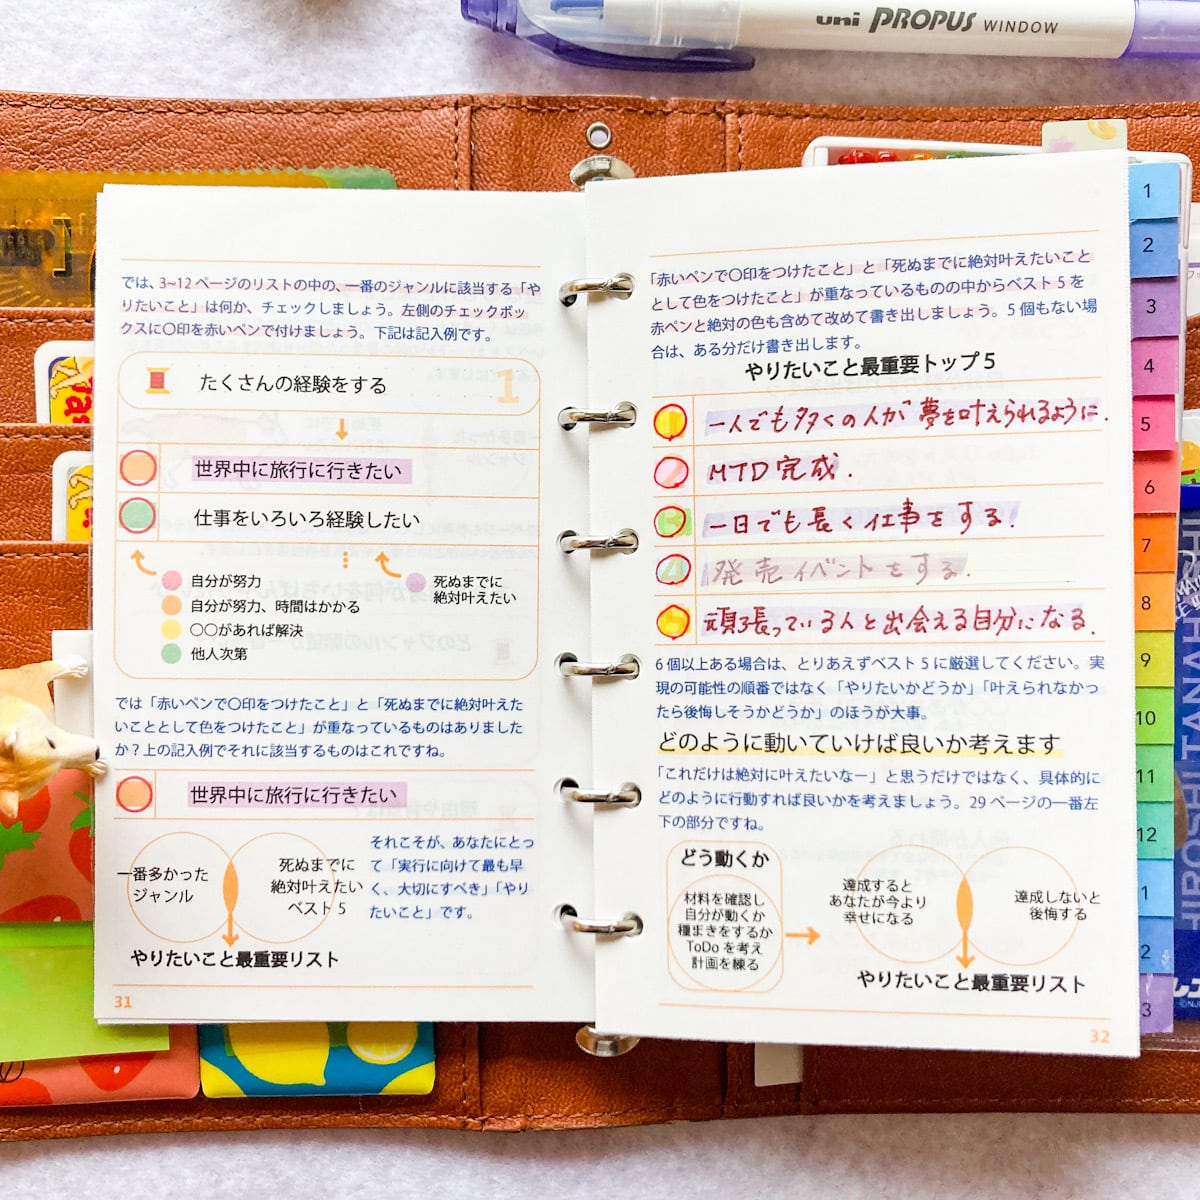 uni PROPUS WINDOW
では、3~12 ページのリストの中の、一番のジャンルに該当する「や
りたいこと」は何か、チェックしましょう。左側のチェックボッ
クスに〇印を赤いペンで付けましょう。下記は記入例です。
たくさんの経験をする
1
世界中に旅行に行きたい
仕事をいろいろ経験したい
自分が努力
自分が努力、時間はかかる
〇〇があれば解決
他人次第
死ぬまでに
絶対叶えたい
では「赤いペンで〇印をつけたこと」と「死ぬまでに絶対叶えた
いこととして色をつけたこと」が重なっているものはありました
か？上の記入例でそれに該当するものはこれですね。
世界中に旅行に行きたい
一番多かった
ジャンル
死ぬまでに
絶対叶えたい
ベスト 5
それこそが、あなたにとっ
て「実行に向けて最も早
く、大切にすべき」「やり
たいこと」です。
やりたいこと最重要リスト
31
「赤いペンで〇印をつけたこと」と「死ぬまでに絶対叶えたいこと
として色をつけたこと」が重なっているものの中からベスト 5 を
赤ペンと絶対の色も含めて改めて書き出しましょう。5 個もない場
合は、ある分だけ書き出します。
やりたいこと最重要トップ 5
1 一人でも多くの人が夢を叶えられるように.
2 MTD完成.
3 一日でも長く仕事をする.
4 発売イベントをする.
5 頑張っている人と出会える自分になる.
6 個以上ある場合は、とりあえずベスト 5 に厳選してください。実
現の可能性の順番ではなく「やりたいかどうか」「叶えられなかっ
たら後悔しそうかどうか」のほうが大事。
どのように動いていけば良いか考えます
「これだけは絶対に叶えたいなー」と思うだけではなく、具体的に
どのように行動すれば良いかを考えましょう。29 ページの一番左
下の部分ですね。
どう動くか
材料を確認し
自分が動くか
種まきをするか
ToDo を考え
計画を練る
達成すると
あなたが今より
幸せになる
達成しないと
後悔する
やりたいこと最重要リスト
32
1
2
3
4
5
6
7
8
9
10
11
12
1
2
3